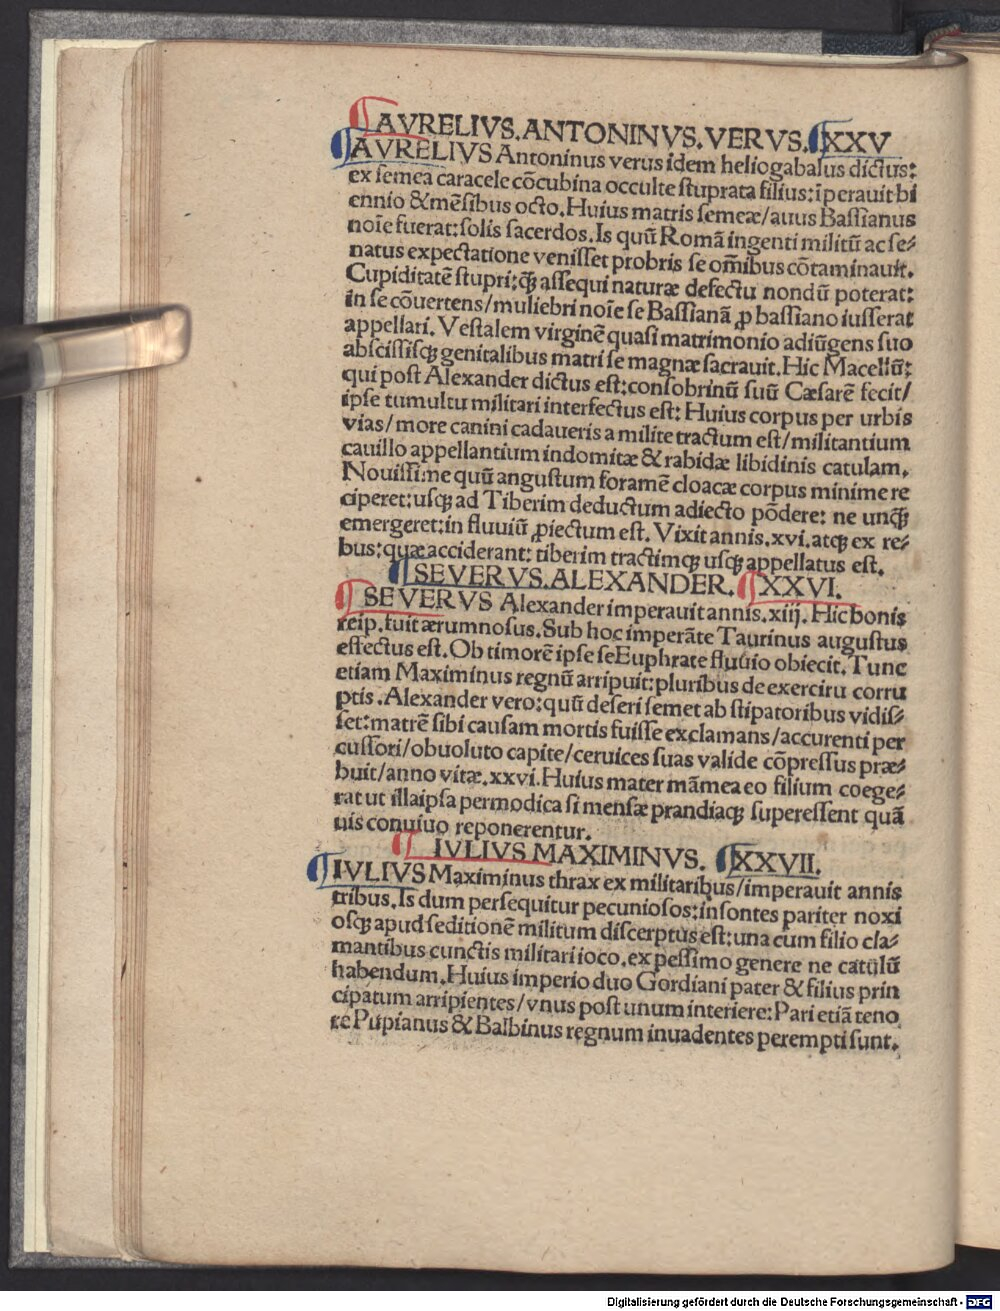 ¶AVRELIVS.ANTONINVS.VERVS.¶XXV
¶AVRELIVS Antoninus verus idem heliogabalus dictus:
ex ſemea caracele cõcubina occulte ſtuprata filius:ĩperauit bi
ennio &mẽſibus octo.Huius matris ſemeæ/auus Baſſianus
noĩe fuerat:ſolis ſacerdos.Is quũ Romã ingenti militũ ac ſe⸗
natus expectatione veniſſet probris ſe om̃ibus cõtaminauit.
Cupiditatẽ ſtupri:qꝫ̃ aſſequi naturæ defectu nondũ poterat:
in ſe cõuertens/muliebri noĩe ſe Baſſianã ꝓ baſſiano iuſſerat
appellari.Veſtalem virginẽ quaſi matrimonio adiũgens ſuo
abſciſſiſqꝫ genitalibus matri ſe magnæ ſacrauit.Hic Macellũ:
qui poſt Alexander dictus eſt:conſobrinũ ſuũ Cæſarẽ fecit/
ipſe tumultu militari interfectus eſt: Huius corpus per urbis
vias/more canini cadaueris a milite tractum eſt/militantium
cauillo appellantium indomitæ & rabidæ libidinis catulam.
Nouiſſime quũ anguſtum foramẽ cloacæ corpus minime re
ciperet:uſqꝫ ad Tiberim deductum adiecto põdere: ne unqꝫ̃
emergeret:in fluuiũ ꝓiectum eſt.Vixit annis.xvi.atqꝫ ex re⸗
bus:quæ acciderant: tiberim tractimqꝫ uſqꝫ appellatus eſt.
¶SEVERVS.ALEXANDER.¶XXVI.
¶SEVERVS Alexander imperauit annis.xiij.Hic bonis
reip.fuit ærumnoſus.Sub hoc imperãte Taurinus auguſtus
effectus eſt.Ob timorẽ ipſe ſe Euphrate fluuio obiecit.Tunc
etiam Maximinus regnũ arripuit:pluribus de exercitu corru
ptis.Alexander vero:quũ deſeri ſemet ab ſtipatoribus vidiſ⸗
ſet:matrẽ ſibi cauſam mortis fuiſſe exclamans/accurenti per
cuſſori/obuoluto capite/ceruices ſuas valide cõpreſſus præ⸗
buit/anno vitæ.xxvi.Huius mater mãmea eo filium coege⸗
rat ut illa ipſa permodica ſi menſæ prandiaqꝫ ſupereſſent quã
uis conuiuo reponerentur.
¶IVLIVS MAXIMINVS. ¶XXVII.
¶IVLIVS Maximinus thrax ex militaribus/imperauit annis
tribus.Is dum perſequitur pecunioſos:inſontes pariter noxi
oſqꝫ apud ſeditionẽ militum diſcerptus eſt:una cum filio cla⸗
mantibus cunctis militari ioco.ex peſſimo genere ne catulũ
habendum.Huius imperio duo Gordiani pater & filius prin
cipatum arripientes/vnus poſt unum interiere:Pari etiã teno
re Pupianus & Balbinus regnum inuadentes perempti ſunt.
Digitalisierung gefördert durch die Deutsche Forschungsgemeinschaft - DFG